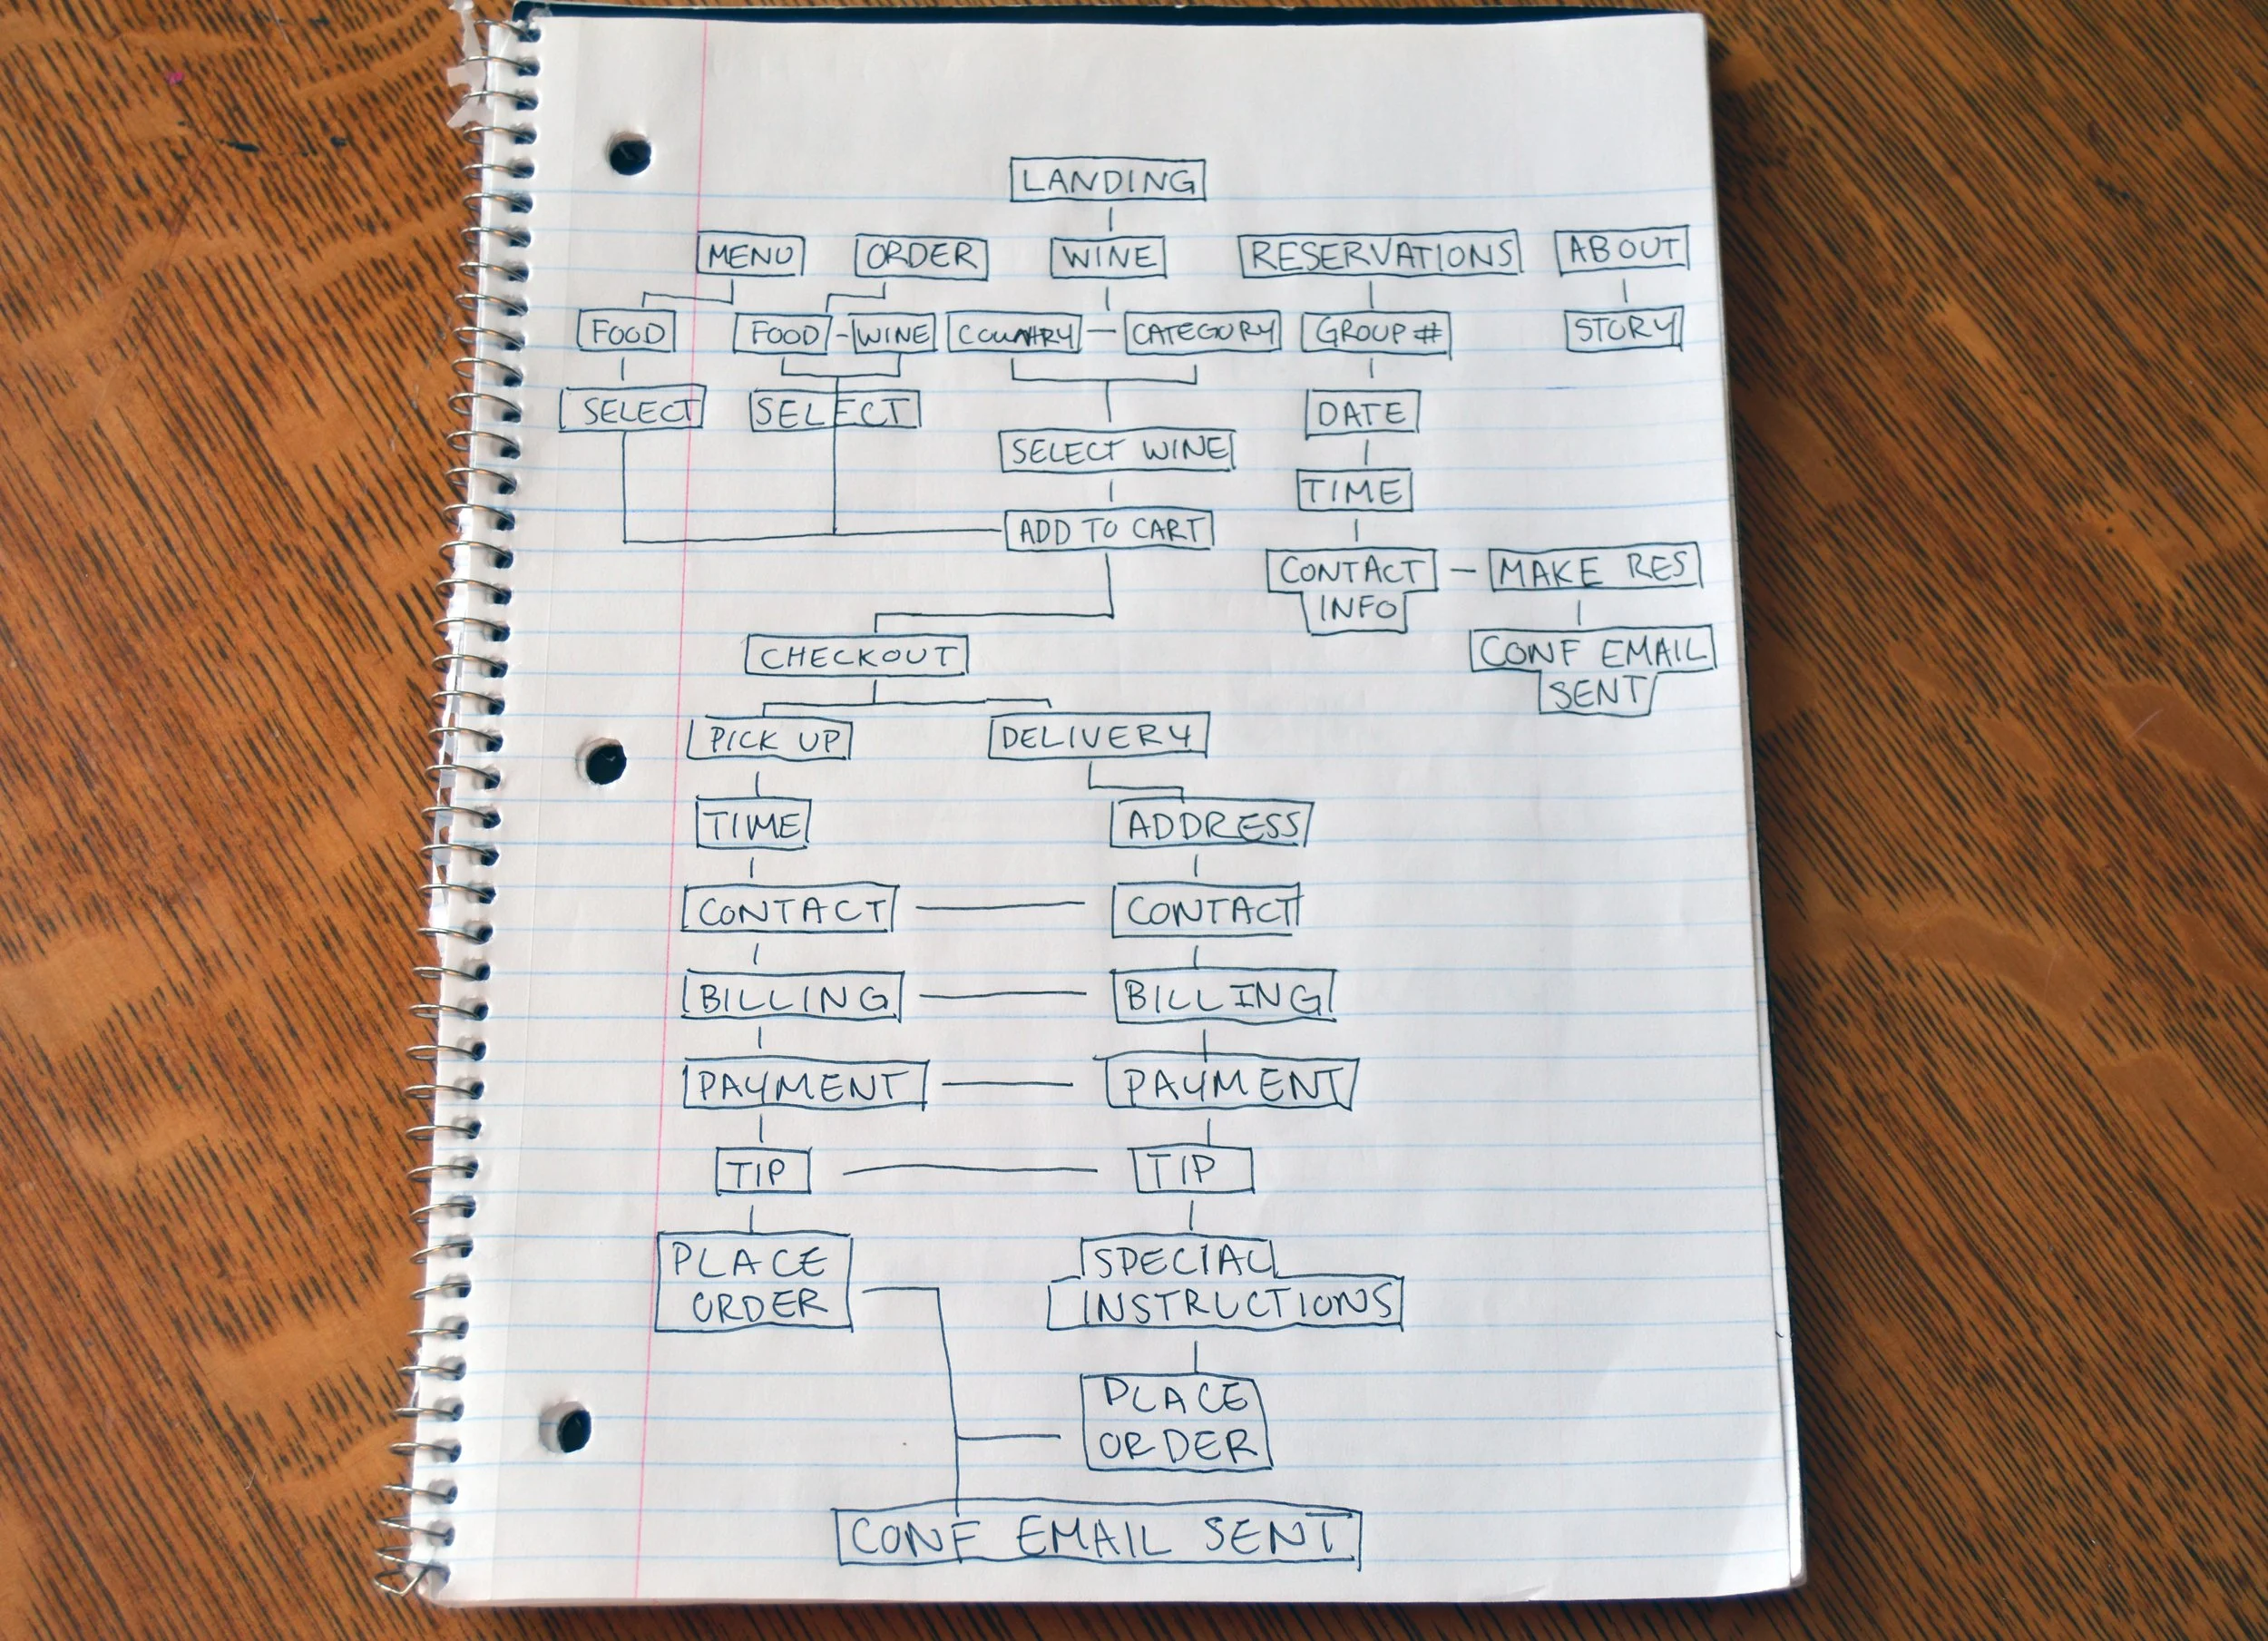 LANDING
MENU ORDER WINE RESERVATIONS ABOUT
FOOD FOOD - WINE COUNTRY - CATEGORY GROUP # STORY
SELECT SELECT DATE
SELECT WINE
TIME
ADD TO CART
CONTACT - MAKE RES
INFO
CHECKOUT CONF EMAIL
SENT
PICK UP DELIVERY
TIME ADDRESS
CONTACT CONTACT
BILLING BILLING
PAYMENT PAYMENT
TIP TIP
PLACE SPECIAL
ORDER INSTRUCTIONS
PLACE
ORDER
CONF EMAIL SENT